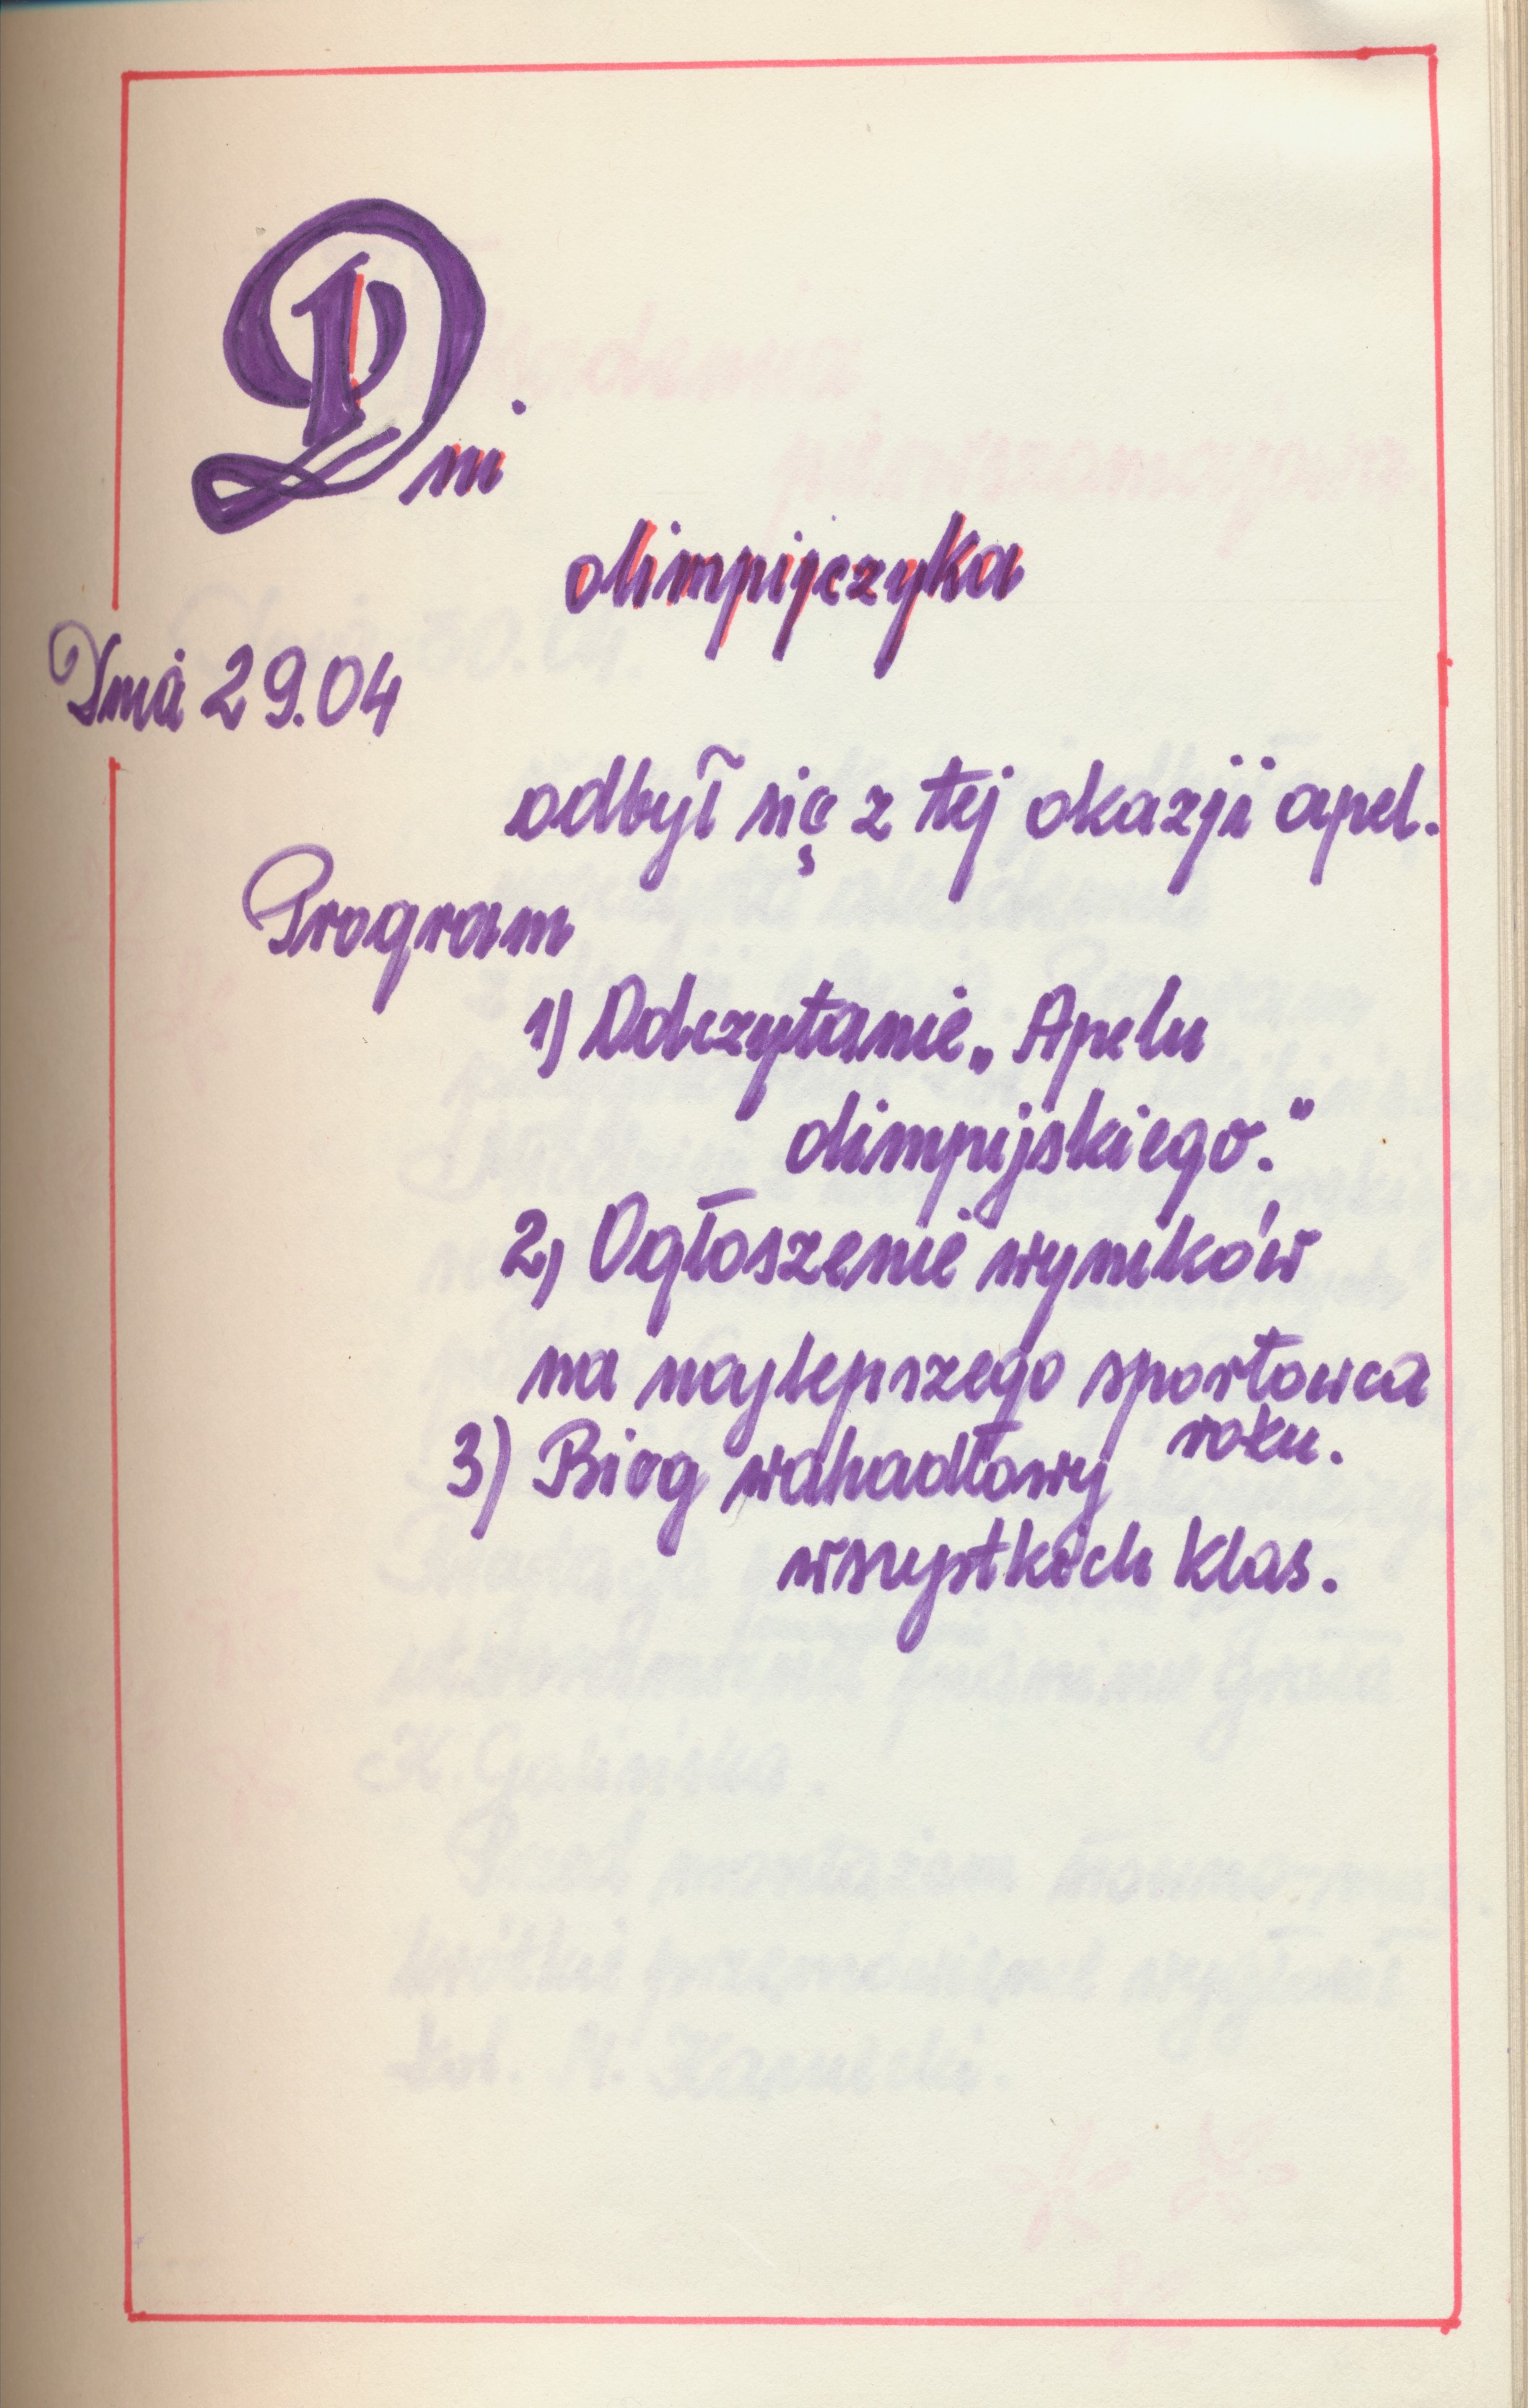 Dni
olimpijczyka
Dnia 29.04
odbył się z tej okazji apel.
Program
1) Odczytanie „Apelu
olimpijskiego."
2) Ogłoszenie wyników
na najlepszego sportowca
roku.
3) Bieg wahadłowy
wszystkich klas.